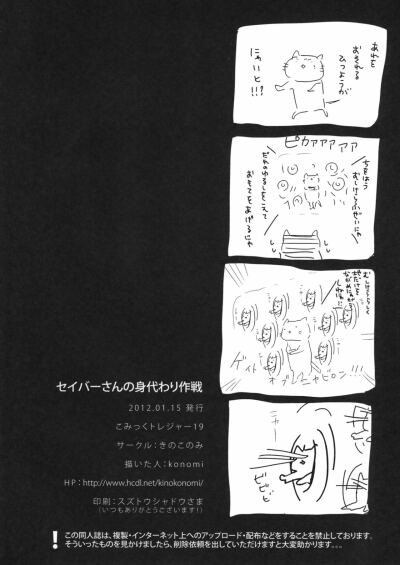 あれを
おそれる
ひつようが
にゃいと!!?
ピカァァァァァ
ちをはう
おもてをあげるにゃ
ゲイト
オブ
ニャビロン!!!
ニャー
セイバーさんの身代わり作戦
2012.01.15 発行
こみっくトレジャー19
サークル:きのこのみ
描いた人:konomi
HP:http://www.hcdl.net/kinokonomi/
印刷:スズトウシャドウさま
(いつもありがとうございます!)
! この同人誌は、複製・インターネット上へのアップロード・配布などをすることを禁止しております。
そういったものを見かけましたら、削除依頼を出していただけますと大変助かります。。。